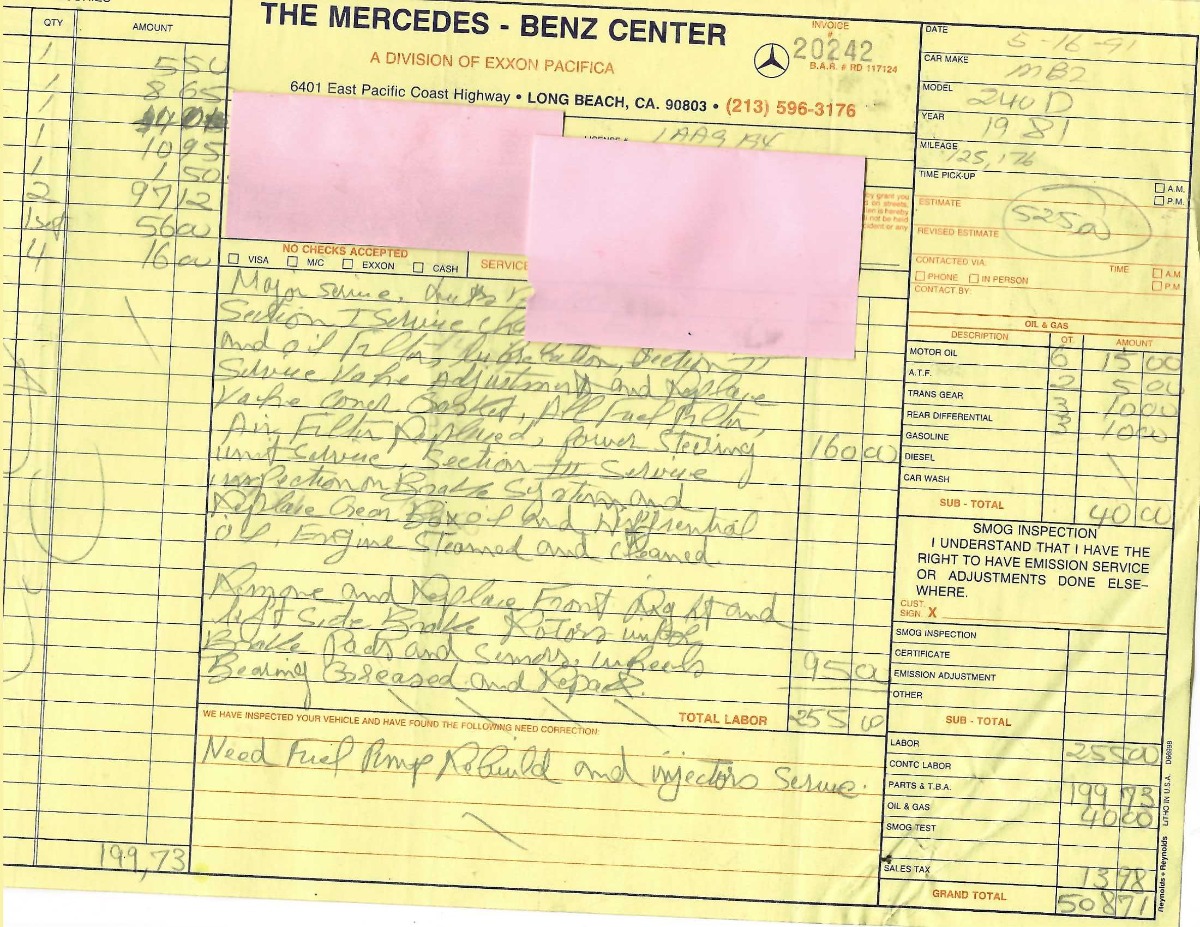 QTY AMOUNT
1 5 50
1 8 65
1
1 10 95
1 1 50
2 97 12
1 set 56 00
4 16 00
199,73
THE MERCEDES - BENZ CENTER
A DIVISION OF EXXON PACIFICA
6401 East Pacific Coast Highway • LONG BEACH, CA. 90803 • (213) 596-3176
INVOICE
#
20242
B.A.R. # RD 117124
NO CHECKS ACCEPTED
VISA M/C EXXON CASH
SERVICE
Major service.
Section I Service
and oil Filter, lubrication, Section II
Service Valve Adjustment and Replace
Valve Cover Gasket, All Fuel Filter,
Air Filter Replaced, power Steering 160 00
unit Service, Section III Service
inspection on Brake System and
Replace Gear Box oil and Differential
oil, Engine Steamed and Cleaned.
Remove and Replace Front Right and
left Side Brake Rotors
Brake Pads and Sensors, wheels 95 00
Bearing Greased and Repack.
TOTAL LABOR 255 00
WE HAVE INSPECTED YOUR VEHICLE AND HAVE FOUND THE FOLLOWING NEED CORRECTION:
Need Fuel Pump Rebuild and injectors Service.
DATE 5-16-91
CAR MAKE MBZ
MODEL 240D
YEAR 1981
MILEAGE 125,176
TIME PICK-UP A.M.
P.M.
ESTIMATE 525 00
REVISED ESTIMATE
CONTACTED VIA: TIME: A.M
PHONE IN PERSON P.M
CONTACT BY:
OIL & GAS
DESCRIPTION QT. AMOUNT
MOTOR OIL 6 15 00
A.T.F. 2 5 00
TRANS GEAR 3 10 00
REAR DIFFERENTIAL 3 10 00
GASOLINE
DIESEL
CAR WASH
SUB - TOTAL 40 00
SMOG INSPECTION
I UNDERSTAND THAT I HAVE THE
RIGHT TO HAVE EMISSION SERVICE
OR ADJUSTMENTS DONE ELSE-
WHERE.
CUST.
SIGN. X
SMOG INSPECTION
CERTIFICATE
EMISSION ADJUSTMENT
OTHER
SUB - TOTAL
LABOR 255 00
CONTC LABOR
PARTS & T.B.A. 199 73
OIL & GAS 40 00
SMOG TEST
SALES TAX 13 98
GRAND TOTAL 508 71
Reynolds + Reynolds LITHO IN U.S.A. D66999